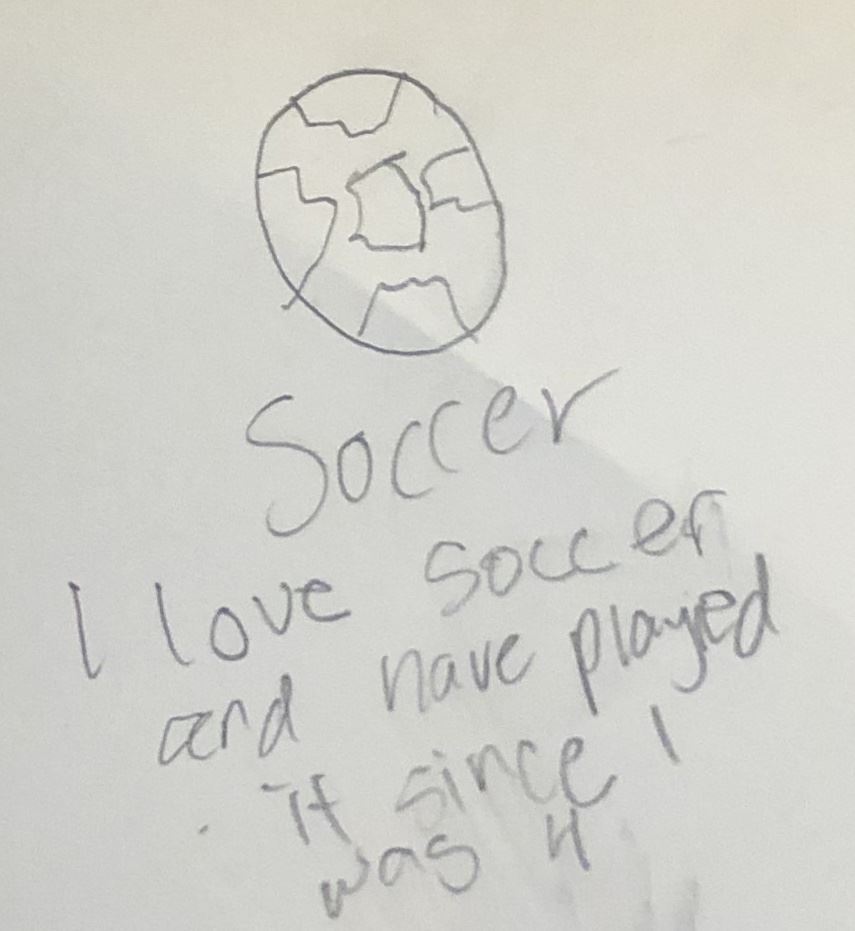 Soccer
I love soccer
and have played
it since I
was 4